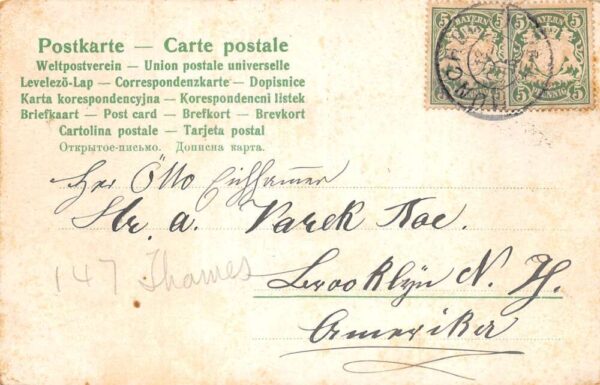 Postkarte — Carte postale
Weltpostverein — Union postale universelle
Levelező-Lap — Correspondenzkarte — Dopisnice
Karta korespondencyjna — Korespondencni listek
Briefkaart — Post card — Brefkort — Brevkort
Cartolina postale — Tarjeta postal
Открытое-письмо. Дописна карта.
5 BAYERN 5
PFENNIG
5 BAYERN 5
PFENNIG
Her Otto
Str. a. Varek Av.
147 Thames
Brooklyn N. Y.
Amerika